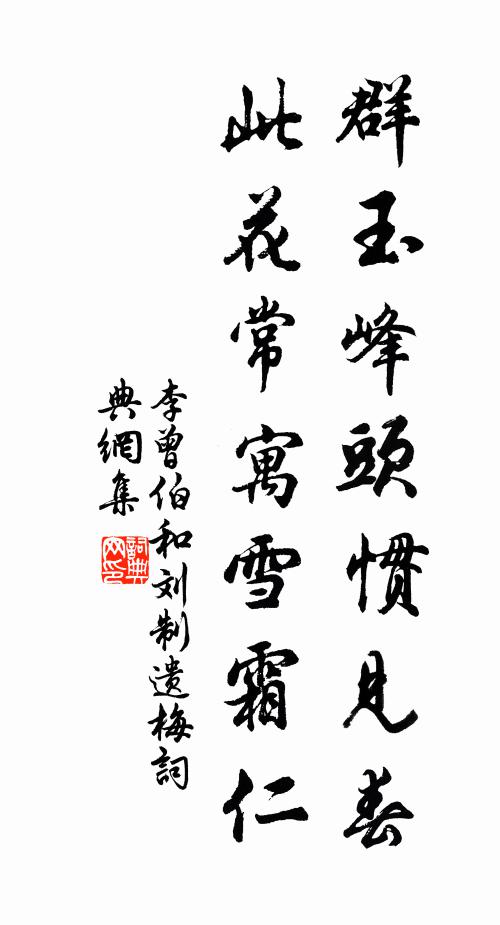 群玉峰頭慣见春
此花常寓雪霜仁
李曾伯和刘制遗梅詞
典網集
詞典
网印